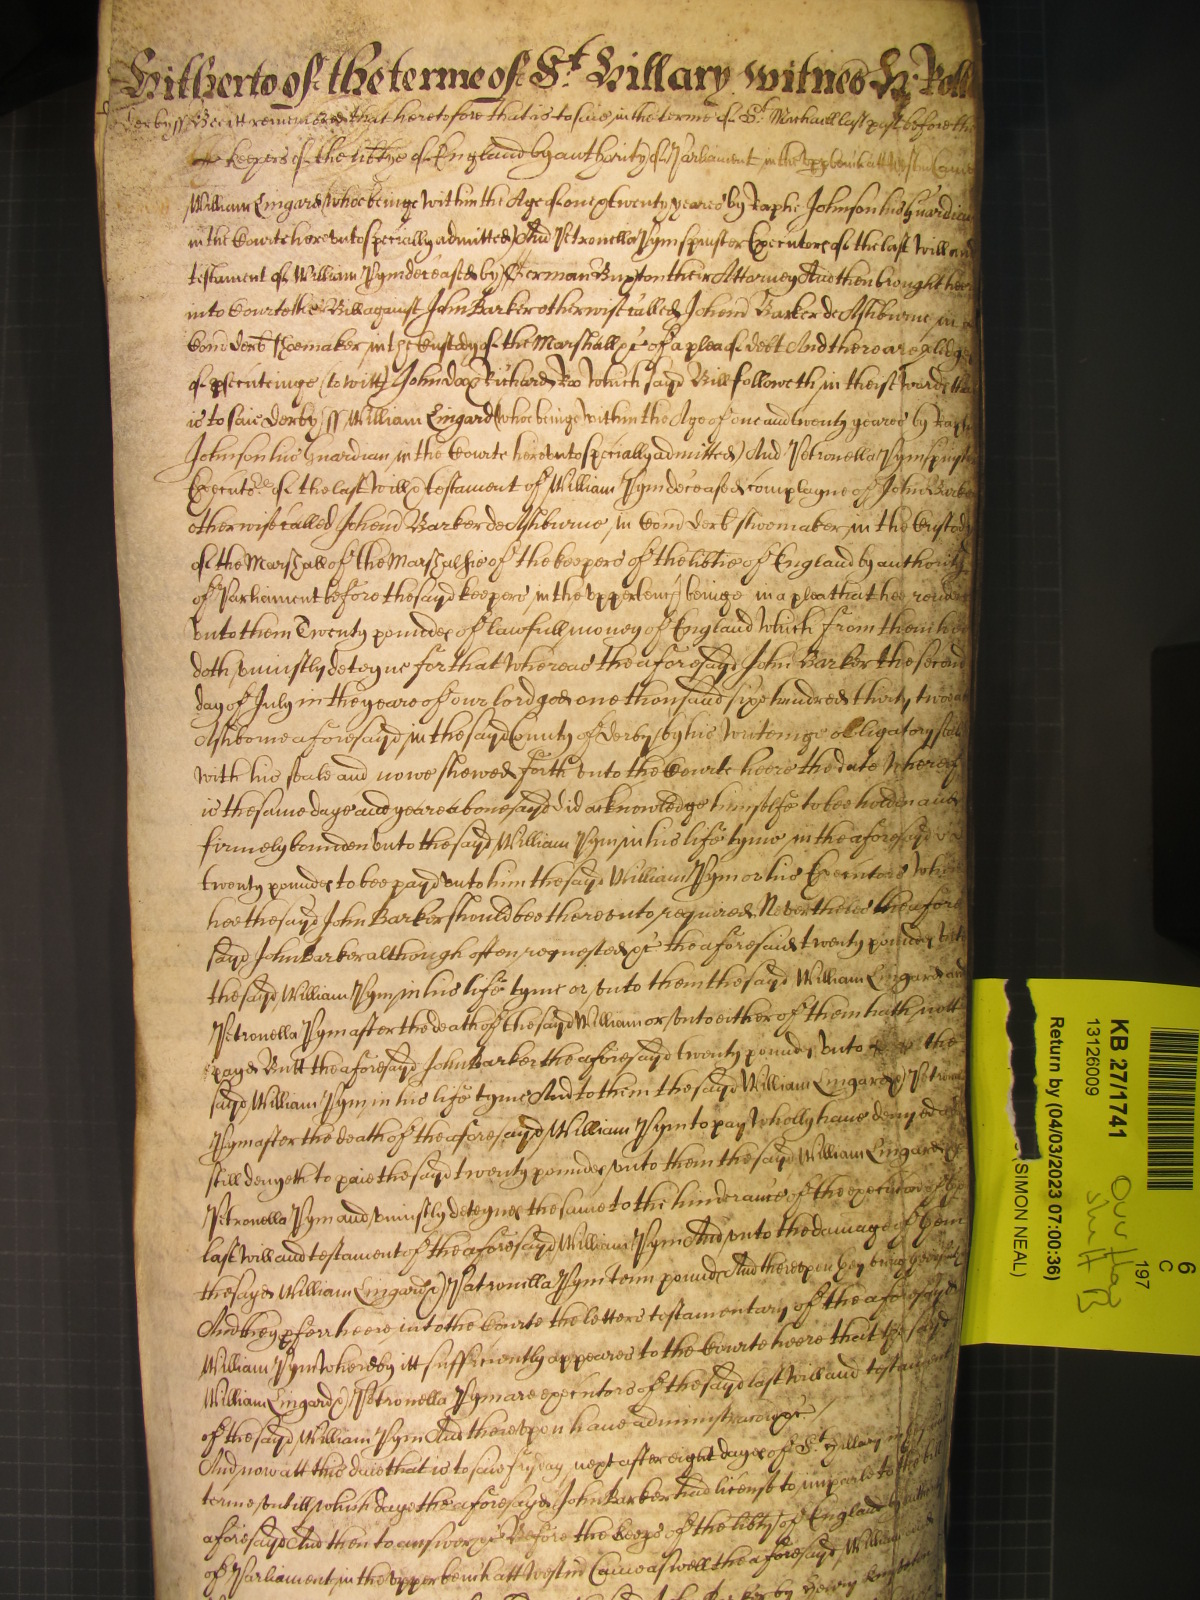 Hitherto of the terme of St Hillary witnes H: Rolle
Derby ss Bee itt remembred that heretofore that is to saie in the terme of St Michaell last past before the
keepers of the lib'tye of England by authority of Parliament in the upper bench att Westm' Came
William Lingard (who beinge within the Age of one & twenty yeares by Raphe Johnson his Guardian
in the Courte here unto specially admitted) And Petronella Pym spinster Executors of the last will and
testament of William Pym deceased by German Buxton their Attorney And then brought here
into Courte their Bill against John Barker otherwise called Johem Barker de Ashburne in
Com' Derb' shoemaker in the Custody of the Marshall &c of a plea of debt And there are pledges
of p'secuteinge (to witt) John doo & Richard Roo Which sayd Bill followeth in theis words that
is to saie Derby ss William Lingard (who beinge within the Age of one and twenty yeares by Raphe
Johnson his Guardian in the Courte here unto specially admitted) And Petronella Pym spinster
Execut's of the last Will & testament of William Pym deceased complayne of John Barker
otherwise called Johem Barker de Ashburne in Com' Derb' shoemaker in the Custody
of the Marshall of the Marshalsie of the keepers of the lib'tie of England by authority
of Parliament before the sayd keepers in the upper bench beinge in a plea that hee render
unto them Twenty poundes of lawfull money of England Which from them hee
doth uniustly deteyne for that Whereas the aforesayd John Barker the second
day of July in the yeare of our lord god one thousand sixe hundred thirty two at
Ashborne aforesayd in the sayd County of Derby by his writeinge obligatory sealed
with his seale and nowe shewed forth unto the Courte heere the date whereof
is the same daye and yeare abovesayd did acknowledge himselfe to bee holden and
firmely bounden unto the sayd William Pym in his life tyme in the aforesayd
twenty poundes to bee payd unto him the sayd William Pym or his Executors when
hee the sayd John Barker should bee thereunto required Nevertheles the afore
sayd John Barker although often requested &c the aforesaid twenty poundes unto
the sayd William Pym in his life tyme or unto them the sayd William Lingard and
Petronella Pym after the death of the sayd William or unto either of them hath nott
payd Butt the aforesayd John Barker the aforesayd twenty poundes unto the
sayd William Pym in his life tyme And to them the sayd William Lingard & Petronella
Pym after the death of the aforesayd William Pym to pay wholly have denyed and
still denyeth to paie the sayd twenty poundes unto them the sayd William Lingard &
Petronella Pym and uniustly deteynes the same to the hinderance of the execucon of the
last will and testament of the aforesayd William Pym And unto the damage of them
the sayd William Lingard & Petronella Pym Tenn pounds And thereupon they bring
And they p'ferr heere into the Courte the letters testamentary of the aforesayd
William Pym Whereby itt sufficiently appeares to the Courte heere that the sayd
William Lingard & Petronella Pym are executors of the sayd last will and testament
of the sayd William Pym And thereupon have administracon &c
And now att this daie that is to saie fryday next after eight dayes of St Hillary in this same
terme untill which daye the aforesayd John Barker had license to imparle to the bill
aforesayd And then to answer &c Before the keeps of the lib'ty of England by authority
of Parliament in the upper bench att Westm' Came as well the aforesayd William
by Henry
KB 27/1741
13126009
Return by (04/03/2023 07:00:36)
(SIMON NEAL)
6
C
197